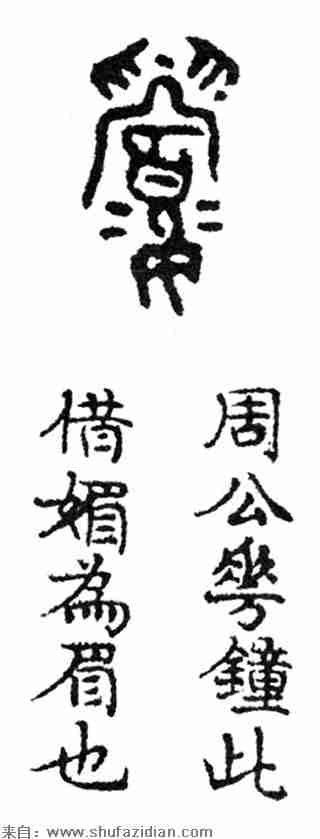 周公華鐘此
借媚為眉也
来自：www.shufazidian.com